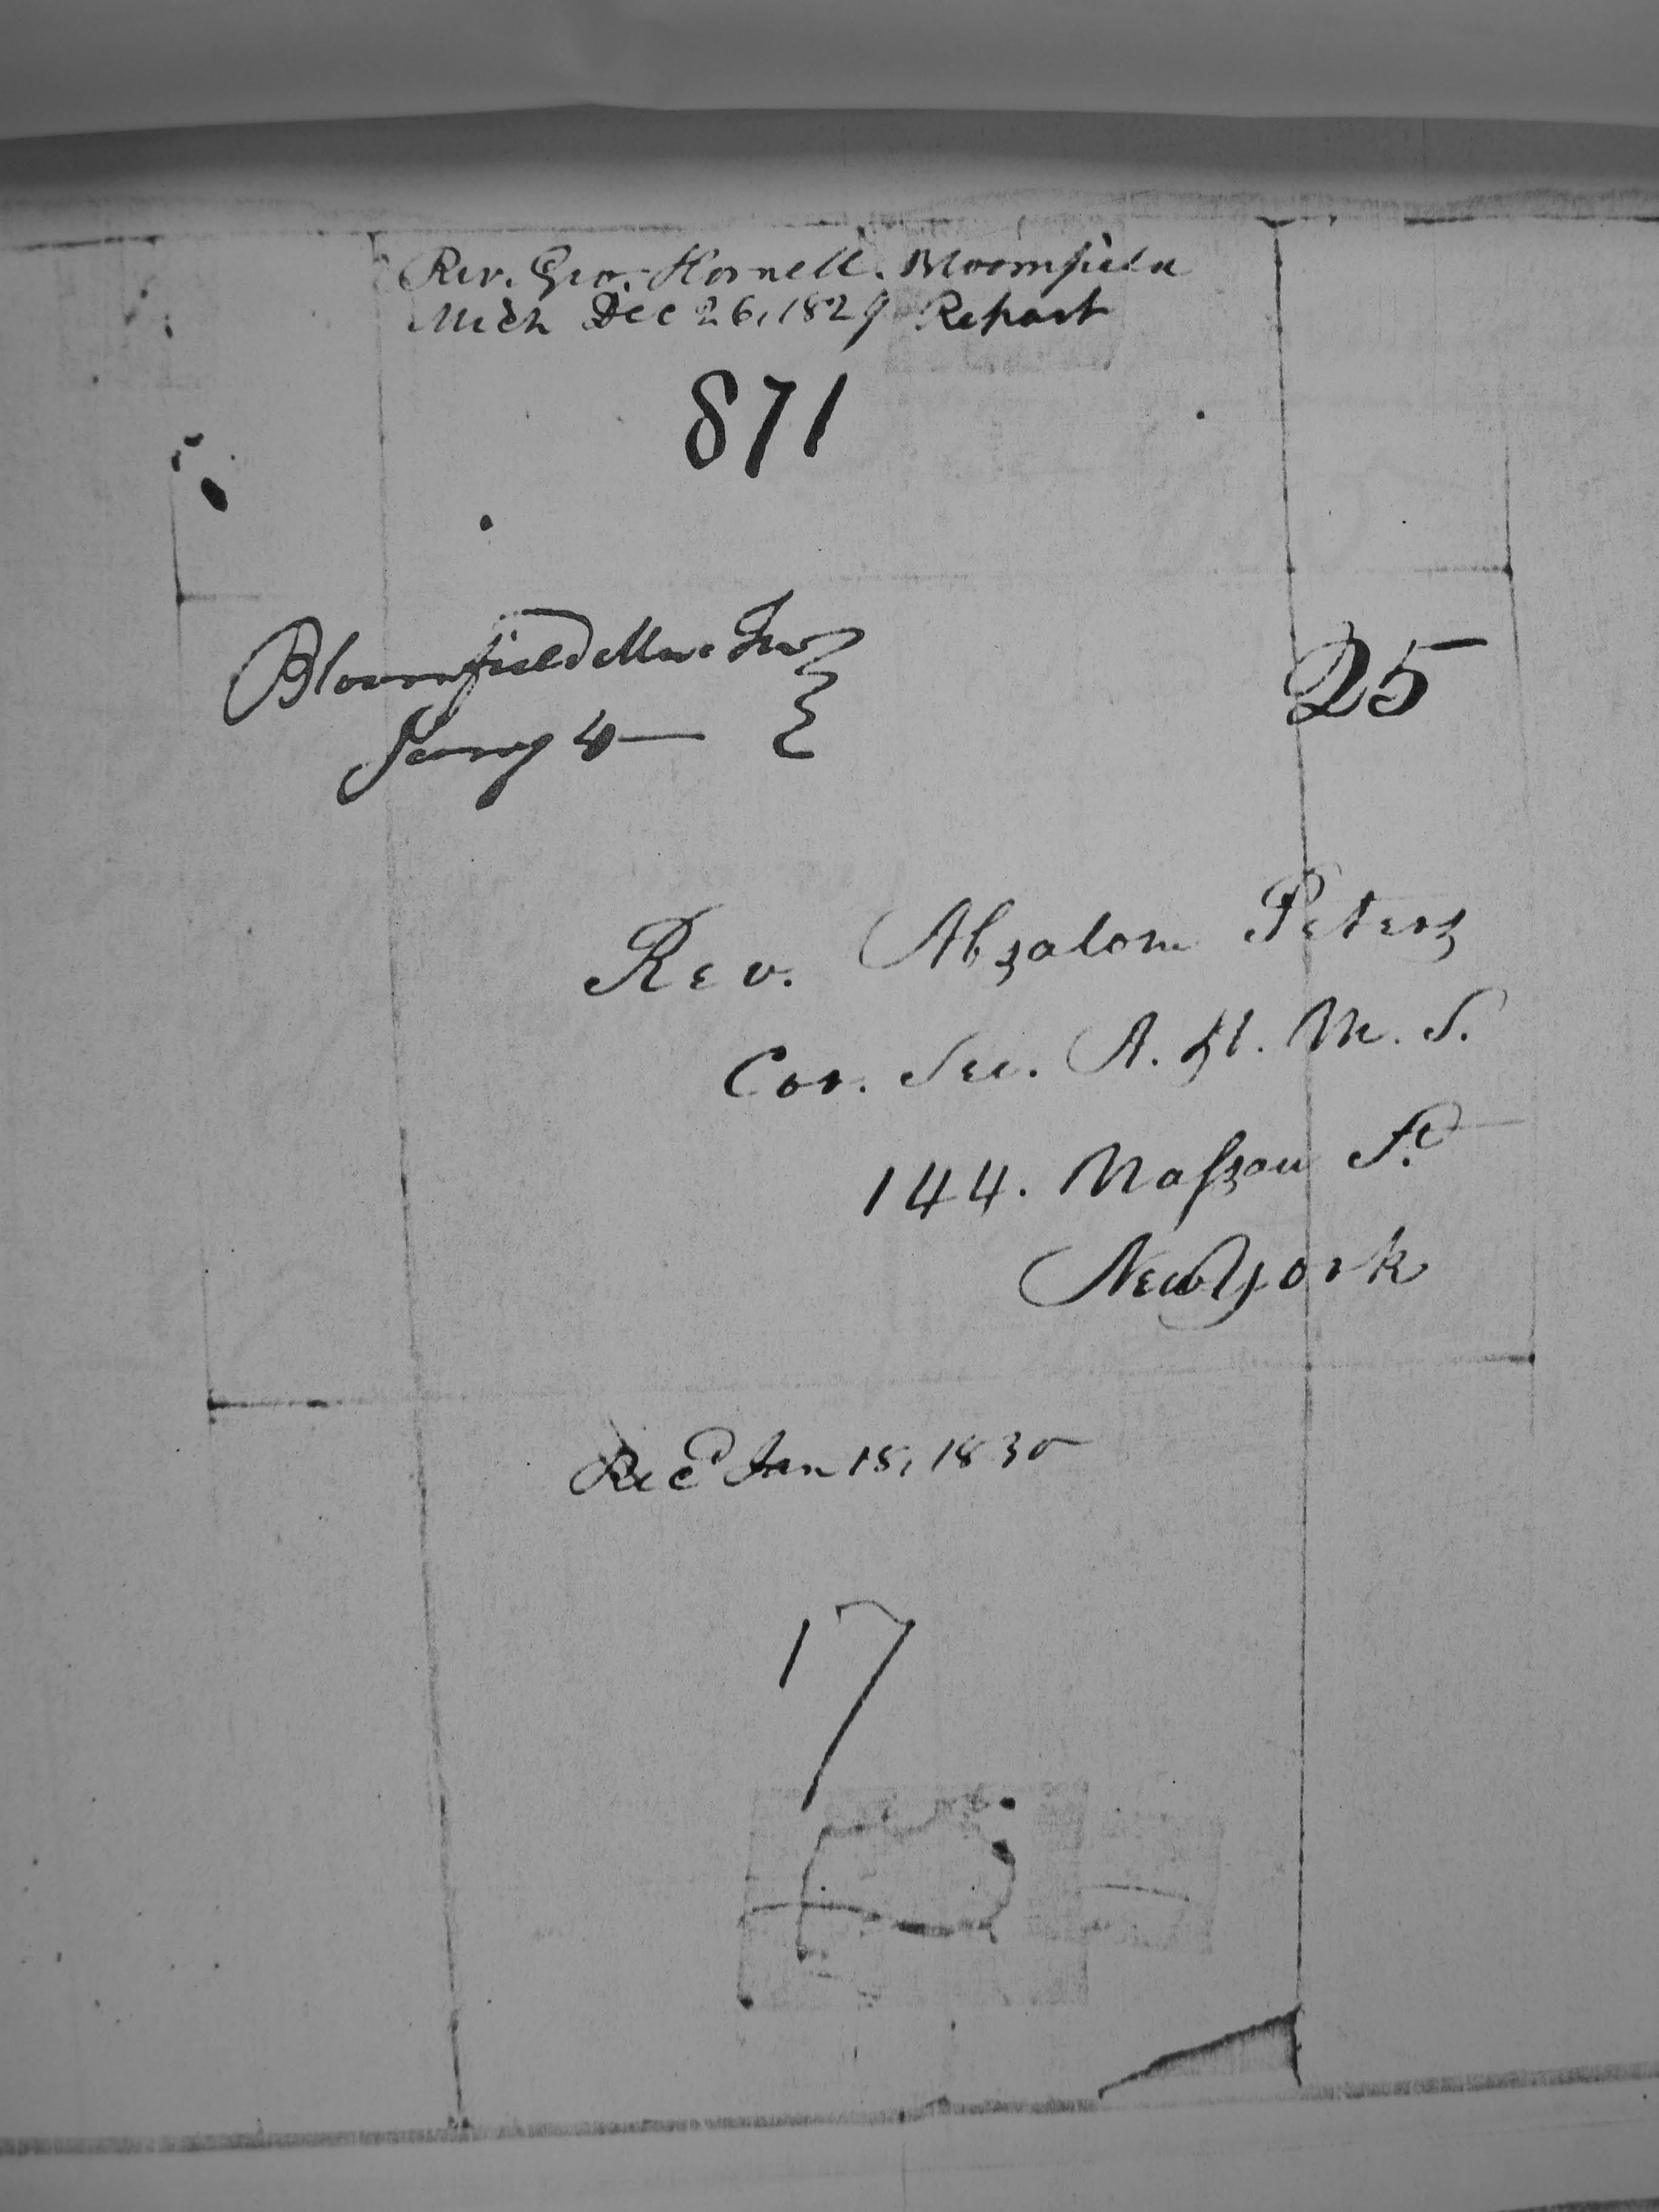 Rev. Geo. Hornell. Bloomfield
Mich Dec 26, 1829 Report
871
Bloomfield
Jany 4
25
Rev. Absalom Peters
Cor. Sec. A. H. M. S.
144. Nassau St
New York
Recd Jan 18, 1830
17